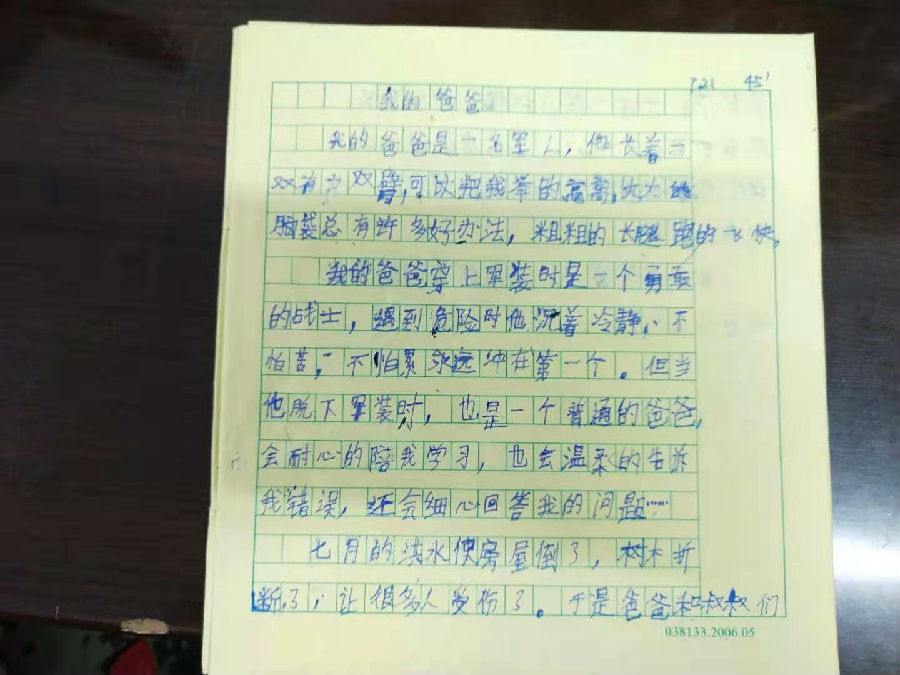 721 45'
我的爸爸
我的爸爸是一名军人，他长着一
双有力双臂，可以把我举的高高，大大的
脑袋总有许多好办法，粗粗的长腿跑的飞快。
我的爸爸穿上军装时是一个勇敢
的战士，遇到危险时他沉着冷静，不
怕苦，不怕累永远冲在第一个。但当
他脱下军装时，也是一个普通的爸爸，
会耐心的陪我学习，也会温柔的告诉
我错误，还会细心回答我的问题……
七月的洪水使房屋倒了，树木折
断了，让很多人受伤了。于是爸爸和叔叔们
038133.2006.05